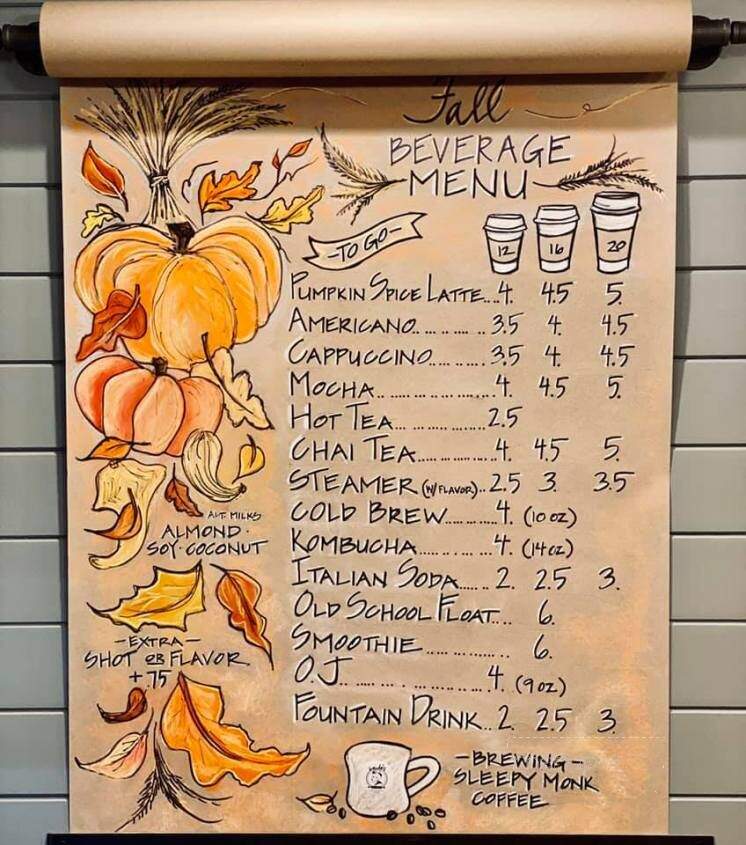 Fall
BEVERAGE
MENU
-TO GO-
12 16 20
PUMPKIN SPICE LATTE...4. 4.5 5.
AMERICANO........... 3.5 4. 4.5
CAPPUCCINO......... 3.5 4. 4.5
MOCHA.................. 4. 4.5 5.
HOT TEA.............. 2.5
CHAI TEA............... 4. 4.5 5.
STEAMER (W/FLAVOR)..2.5 3. 3.5
COLD BREW.......... 4. (10 OZ)
KOMBUCHA............ 4. (14 OZ)
ITALIAN SODA..... 2. 2.5 3.
OLD SCHOOL FLOAT... 6.
SMOOTHIE............... 6.
O.J..................... 4. (9 OZ)
FOUNTAIN DRINK.. 2. 2.5 3.
ALT. MILKS
ALMOND ·
SOY · COCONUT
-EXTRA-
SHOT OR FLAVOR
+.75
-BREWING-
SLEEPY MONK
COFFEE